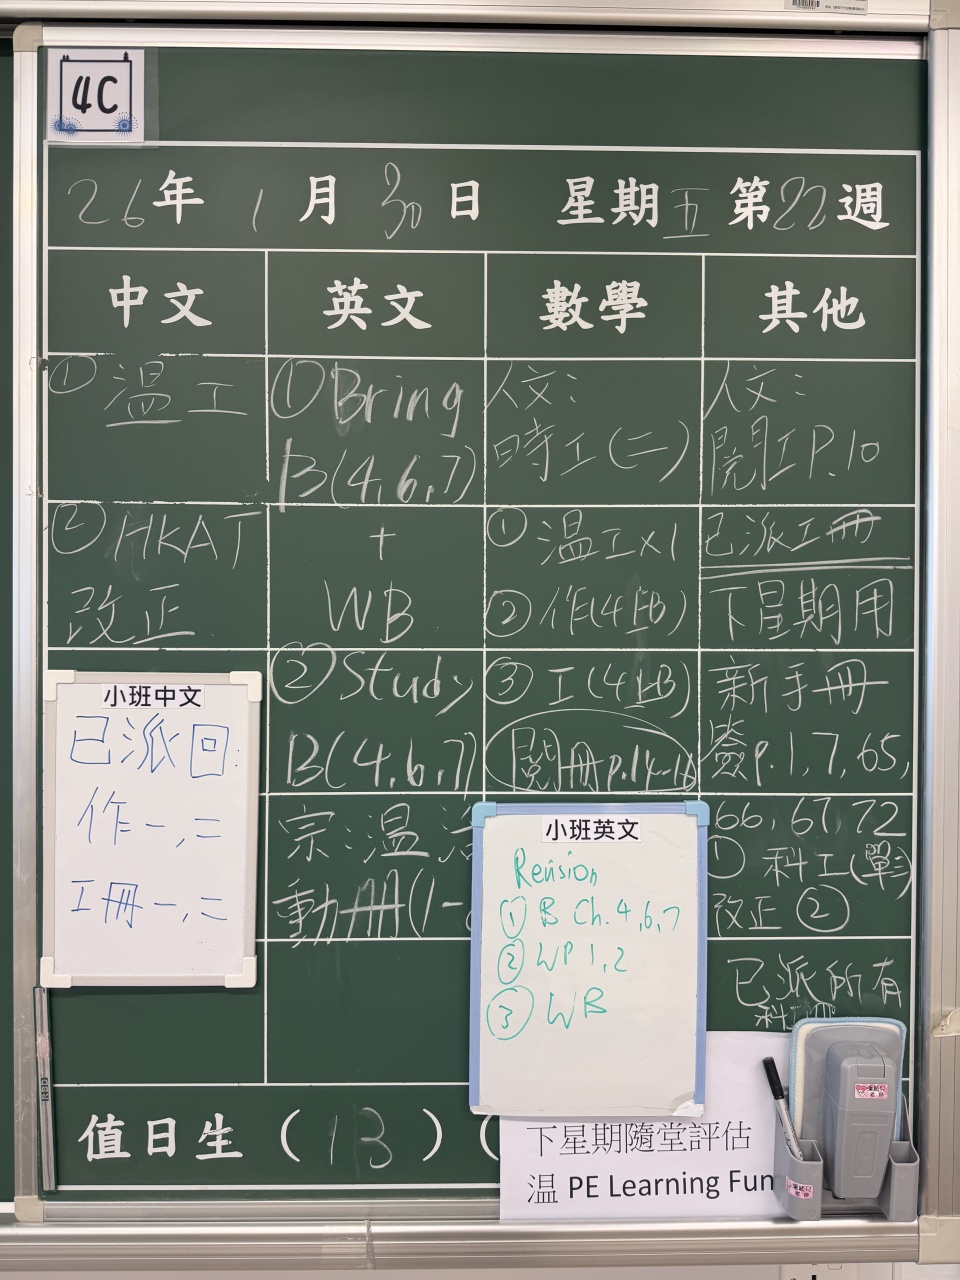 4C
26年 1月 30日 星期五 第22週
中文 英文 數學 其他
① 温工
② HKAT
改正
小班中文
已派回:
作一,二
工冊一,二
① Bring
B(4,6,7)
+
WB
② Study
B(4,6,7)
宗:温活
動冊(1-
人文:
時工(二)
① 温工x1
② 作(4上B)
③ 工(4上B)
閱冊p.14-16
小班英文
Revision
① B Ch. 4,6,7
② WP 1,2
③ WB
人文:
閱工P.10
已派工冊
下星期用
新手冊
簽p.1,7,65,
66,67,72
① 科工(單3)
改正②
已派所有
科工冊
值日生 (13) (
下星期隨堂評估
温 PE Learning Fun